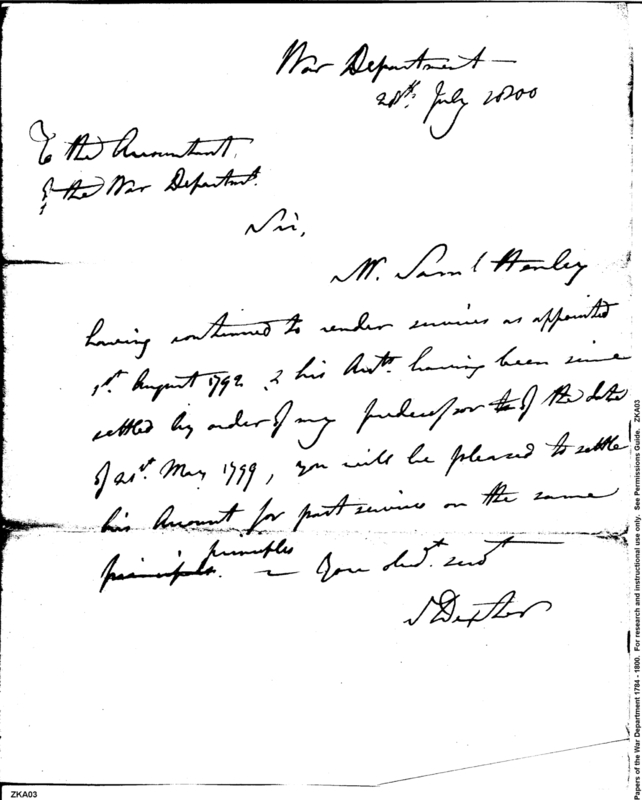 War Department
28th. July 1800
To the Accountant
of the War Departmt.
Sir,
Mr. Saml Henley
having continued to render services as appointed
1st. August 1792 & his Acctts. having been since
settled by order of my predecessor to of the date
of 21st. May 1799, you will be pleased to settle
his Account for past services on the same
principles
principals. – Your obdt. servt
S Dexter
ZKA03
Papers of the War Department 1784 - 1800. For research and instructional use only. See Permissions Guide. ZKA03